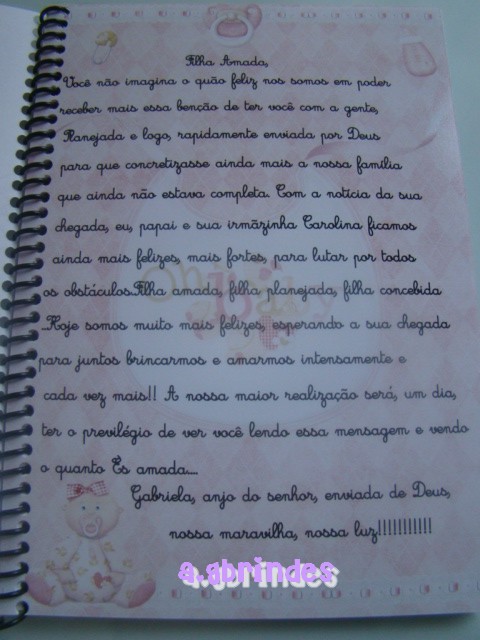 Filha Amada,
Você não imagina o quão feliz nos somos em poder
receber mais essa benção de ter você com a gente,
Planejada e logo, rapidamente enviada por Deus
para que concretizasse ainda mais a nossa família
que ainda não estava completa. Com a notícia da sua
chegada, eu, papai e sua irmãzinha Carolina ficamos
ainda mais felizes, mais fortes, para lutar por todos
os obstáculos.Filha amada, filha planejada, filha concebida
.Hoje somos muito mais felizes, esperando a sua chegada
para juntos brincarmos e amarmos intensamente e
cada vez mais!! A nossa maior realização será, um dia,
ter o previlégio de ver você lendo essa mensagem e vendo
o quanto És amada....
Gabriela, anjo do senhor, enviada de Deus,
nossa maravilha, nossa luz!!!!!!!!!!!
a.gbrindes